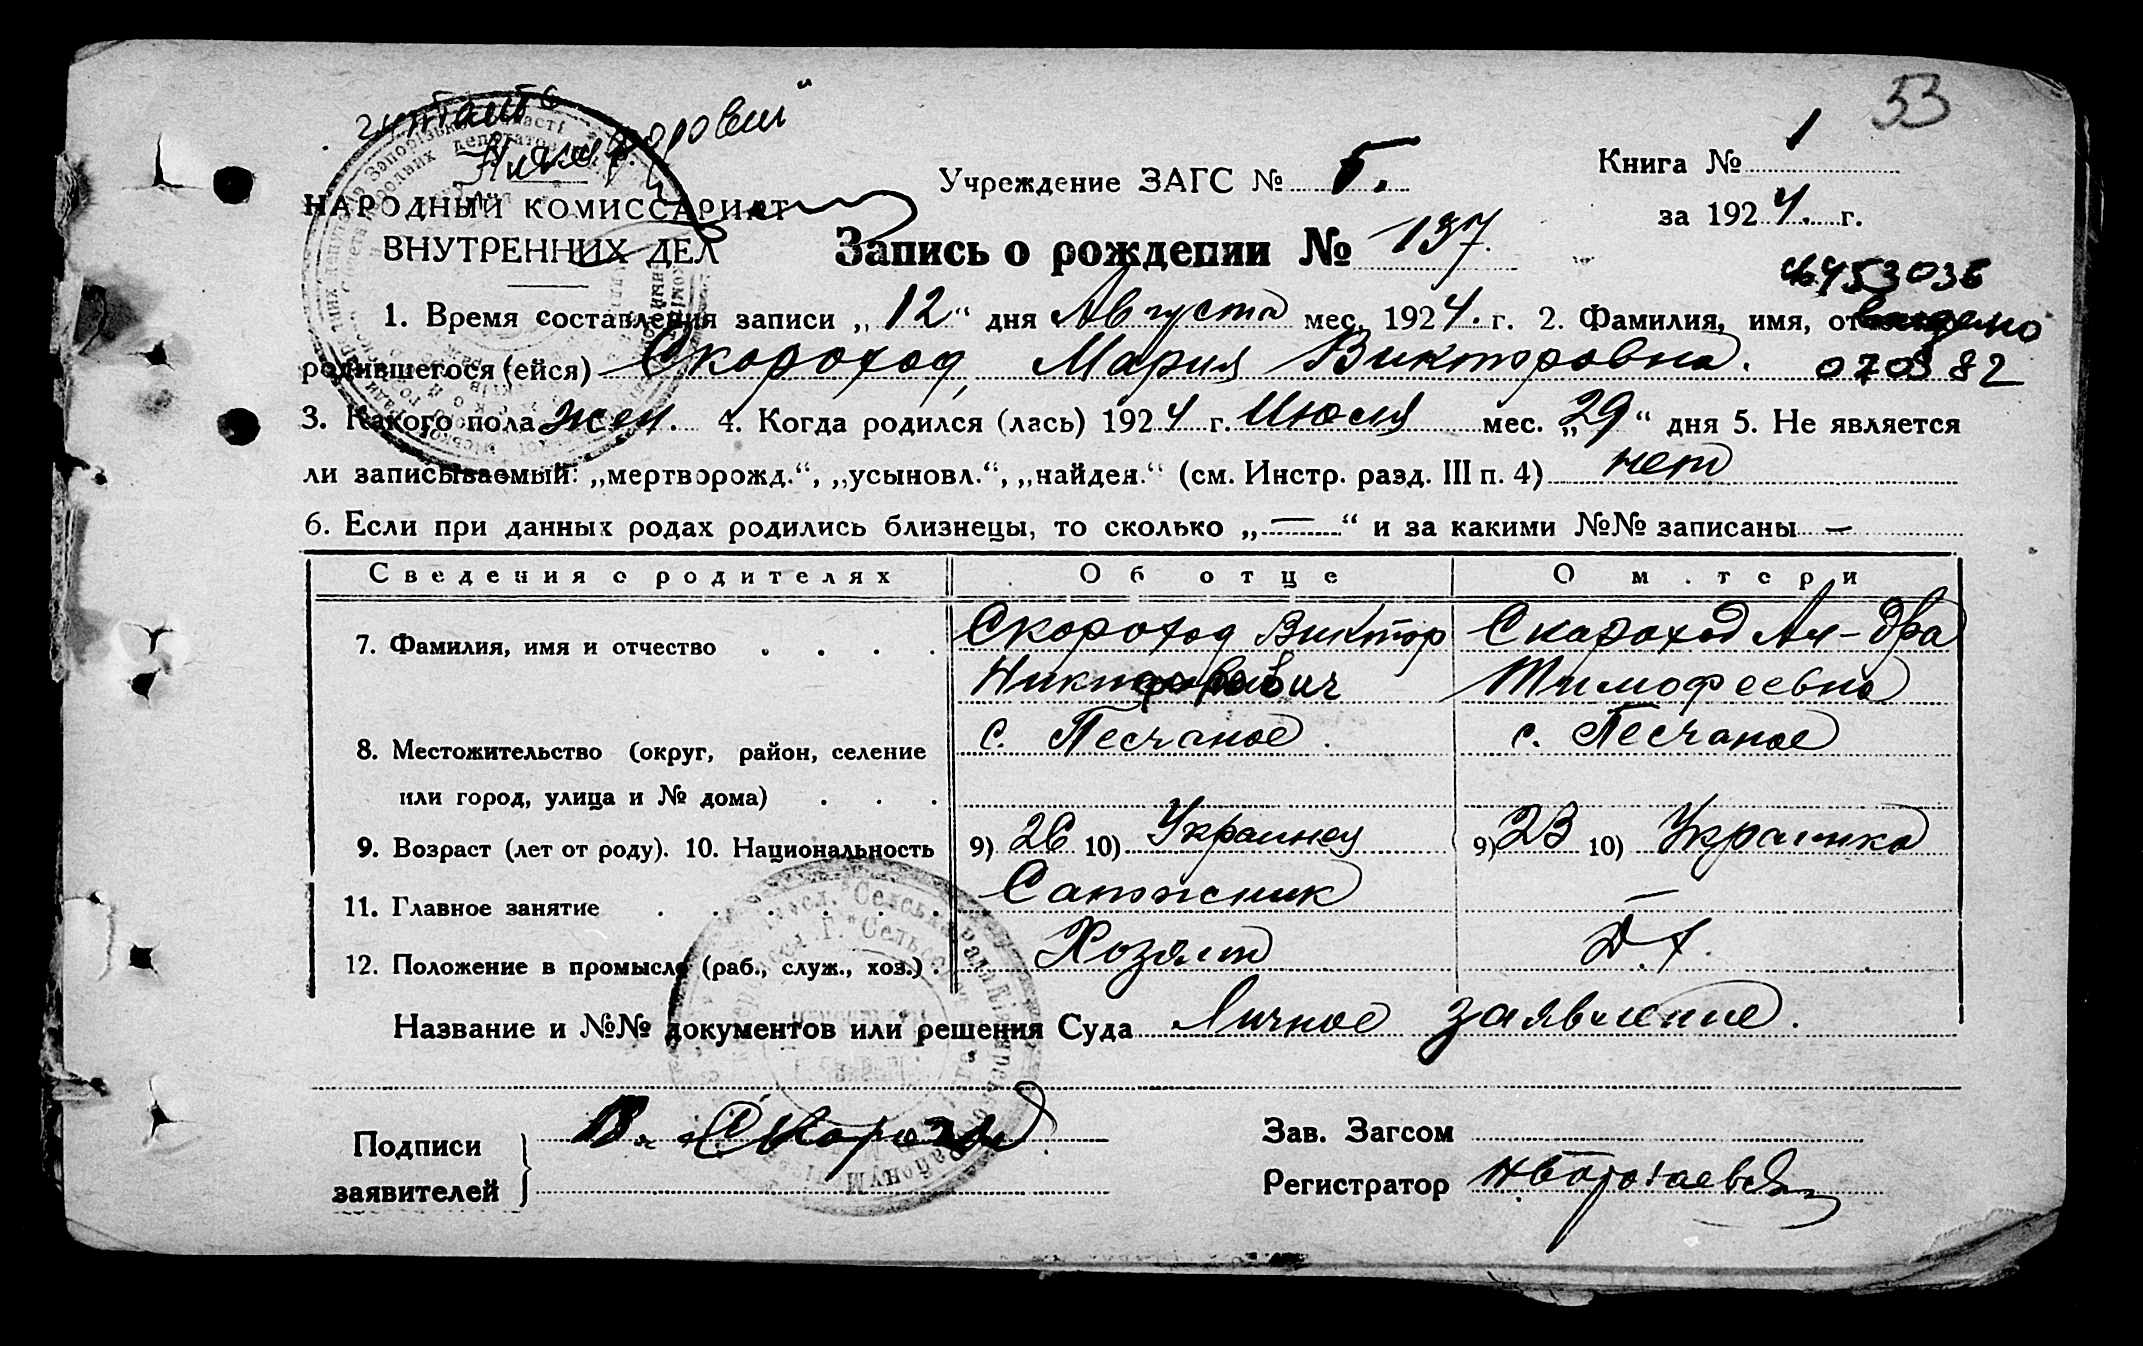 53
читать
Никифорович"
Учреждение ЗАГС № 5.
Книга № 1
за 1924. г.
НАРОДНЫЙ КОМИССАРИАТ
ВНУТРЕННИХ ДЕЛ
Запись о рождении № 197.
453036
1. Время составления записи „12“ дня Августа мес. 1924. г. 2. Фамилия, имя, от
родившегося (ейся) Скороход Мария Викторовна. 070882
3. Какого пола жен. 4. Когда родился (лась) 1924 г. Июля мес. „29“ дня 5. Не является
ли записываемый: „мертворожд.“, „усыновл.“, „найден.“ (см. Инстр. разд. III п. 4) нет
6. Если при данных родах родились близнецы, то сколько „—“ и за какими №№ записаны —
Сведения о родителях Об отце О м.тери
7. Фамилия, имя и отчество . . . . Скороход Виктор Скароход Ал-дра
Никифорович Тимофеевна
8. Местожительство (округ, район, селение с. Песчаное. с. Песчаное
или город, улица и № дома) . . .
9. Возраст (лет от роду). 10. Национальность 9) 26 10) Украинец 9) 23 10) Украинка
11. Главное занятие . . . . . . Сапожник —
12. Положение в промысле (раб., служ., хоз.) . Хозяин Д.Х.
Название и №№ документов или решения Суда Личное заявление.
Подписи В. Скороход
заявителей
Зав. Загсом
Регистратор